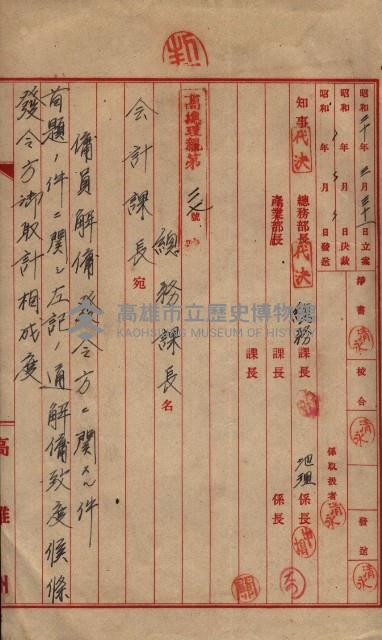 昭和二十年三月三十一日立案
昭和 年 月 日決裁
昭和 年 月 日發送
淨書 清永
校合 清永
發送 清永
係取扱者 清永
知事 代決
總務部長 代決
產業部長
總務課長
課長
課長
地理係長
係長
高總理親第 號
總務課長名
会計課長宛
傭員解傭發令方ニ関スル件
首題ノ件ニ関シ左記ノ通解傭致度候條
發令方御取計相成度
高雄州
高雄市立歷史博物館
KAOHSIUNG MUSEUM OF HISTORY